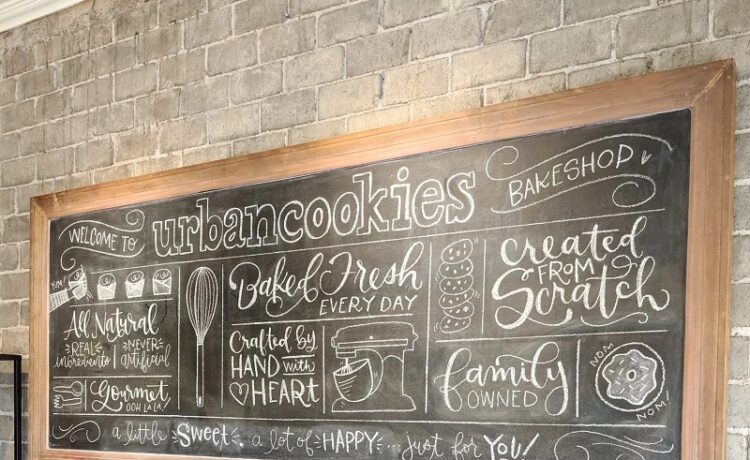 WELCOME TO
urbancookies
BAKESHOP
YUM!
All Natural
REAL ingredients
NEVER artificial
Gourmet
OOH LA LA!
Baked Fresh
EVERY DAY
Crafted by
HAND with
HEART
created
FROM
Scratch
family
OWNED
NOM
NOM!
a little Sweet, a lot of HAPPY... just for YOU!